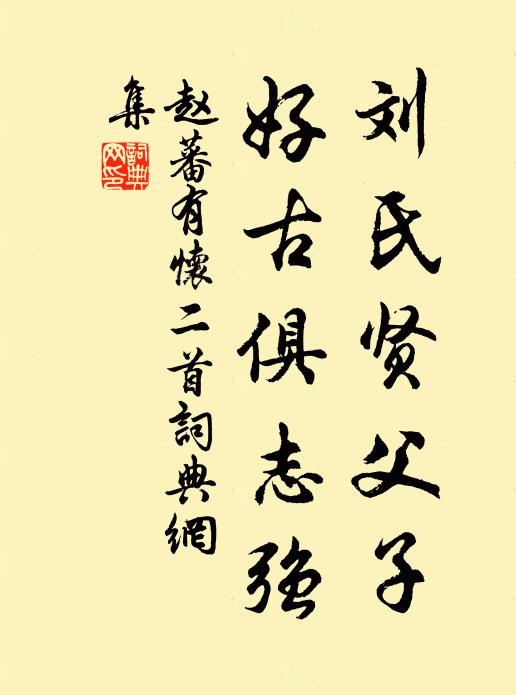 刘氏贤父子
好古俱志强
赵蕃有懷二首詞典網
集
詞典网印